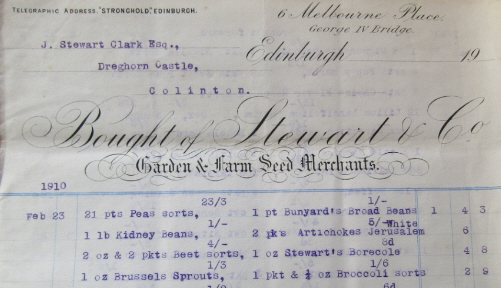 TELEGRAPHIC ADDRESS. "STRONGHOLD", EDINBURGH.
6 Melbourne Place.
George IV Bridge.
J. Stewart Clark Esq.,
Edinburgh 19
Dreghorn Castle,
Colinton.
Bought of Stewart & Co
Garden & Farm Seed Merchants.
1910
23/3 1/-
Feb 23 21 pts Peas sorts, 1 pt Bunyard's Broad Beans 1 4 3
1/- 5/- White
1 lb Kidney Beans, 2 pks Artichokes Jerusalem 6
4/- 8d
2 oz & 2 pkts Beet sorts, 1 oz Stewart's Borecole 4 8
1/3 1/6
1 oz Brussels Sprouts, 1 pkt & ½ oz Broccoli sorts 2 9
6d